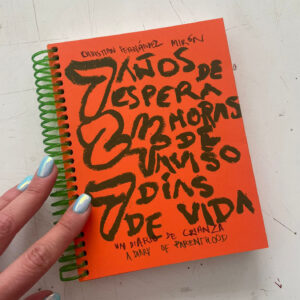 CHRISTIAN FERNÁNDEZ MIRÓN
7 AÑOS DE
ESPERA
23 HORAS
DE
7 DÍAS
DE VIDA
UN DIARIO DE CRIANZA
A DIARY OF PARENTHOOD